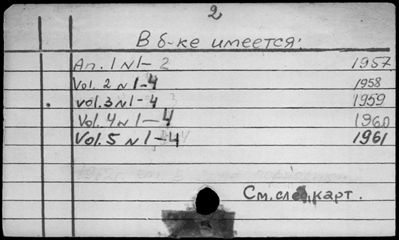 2
В б-ке имеется:
An. 1 N 1-2 1957
Vol. 2 N 1-4 1958
vol. 3 N 1-4 1959
Vol. 4 N 1-4 1960
Vol. 5 N 1-4 1961
См. след карт.